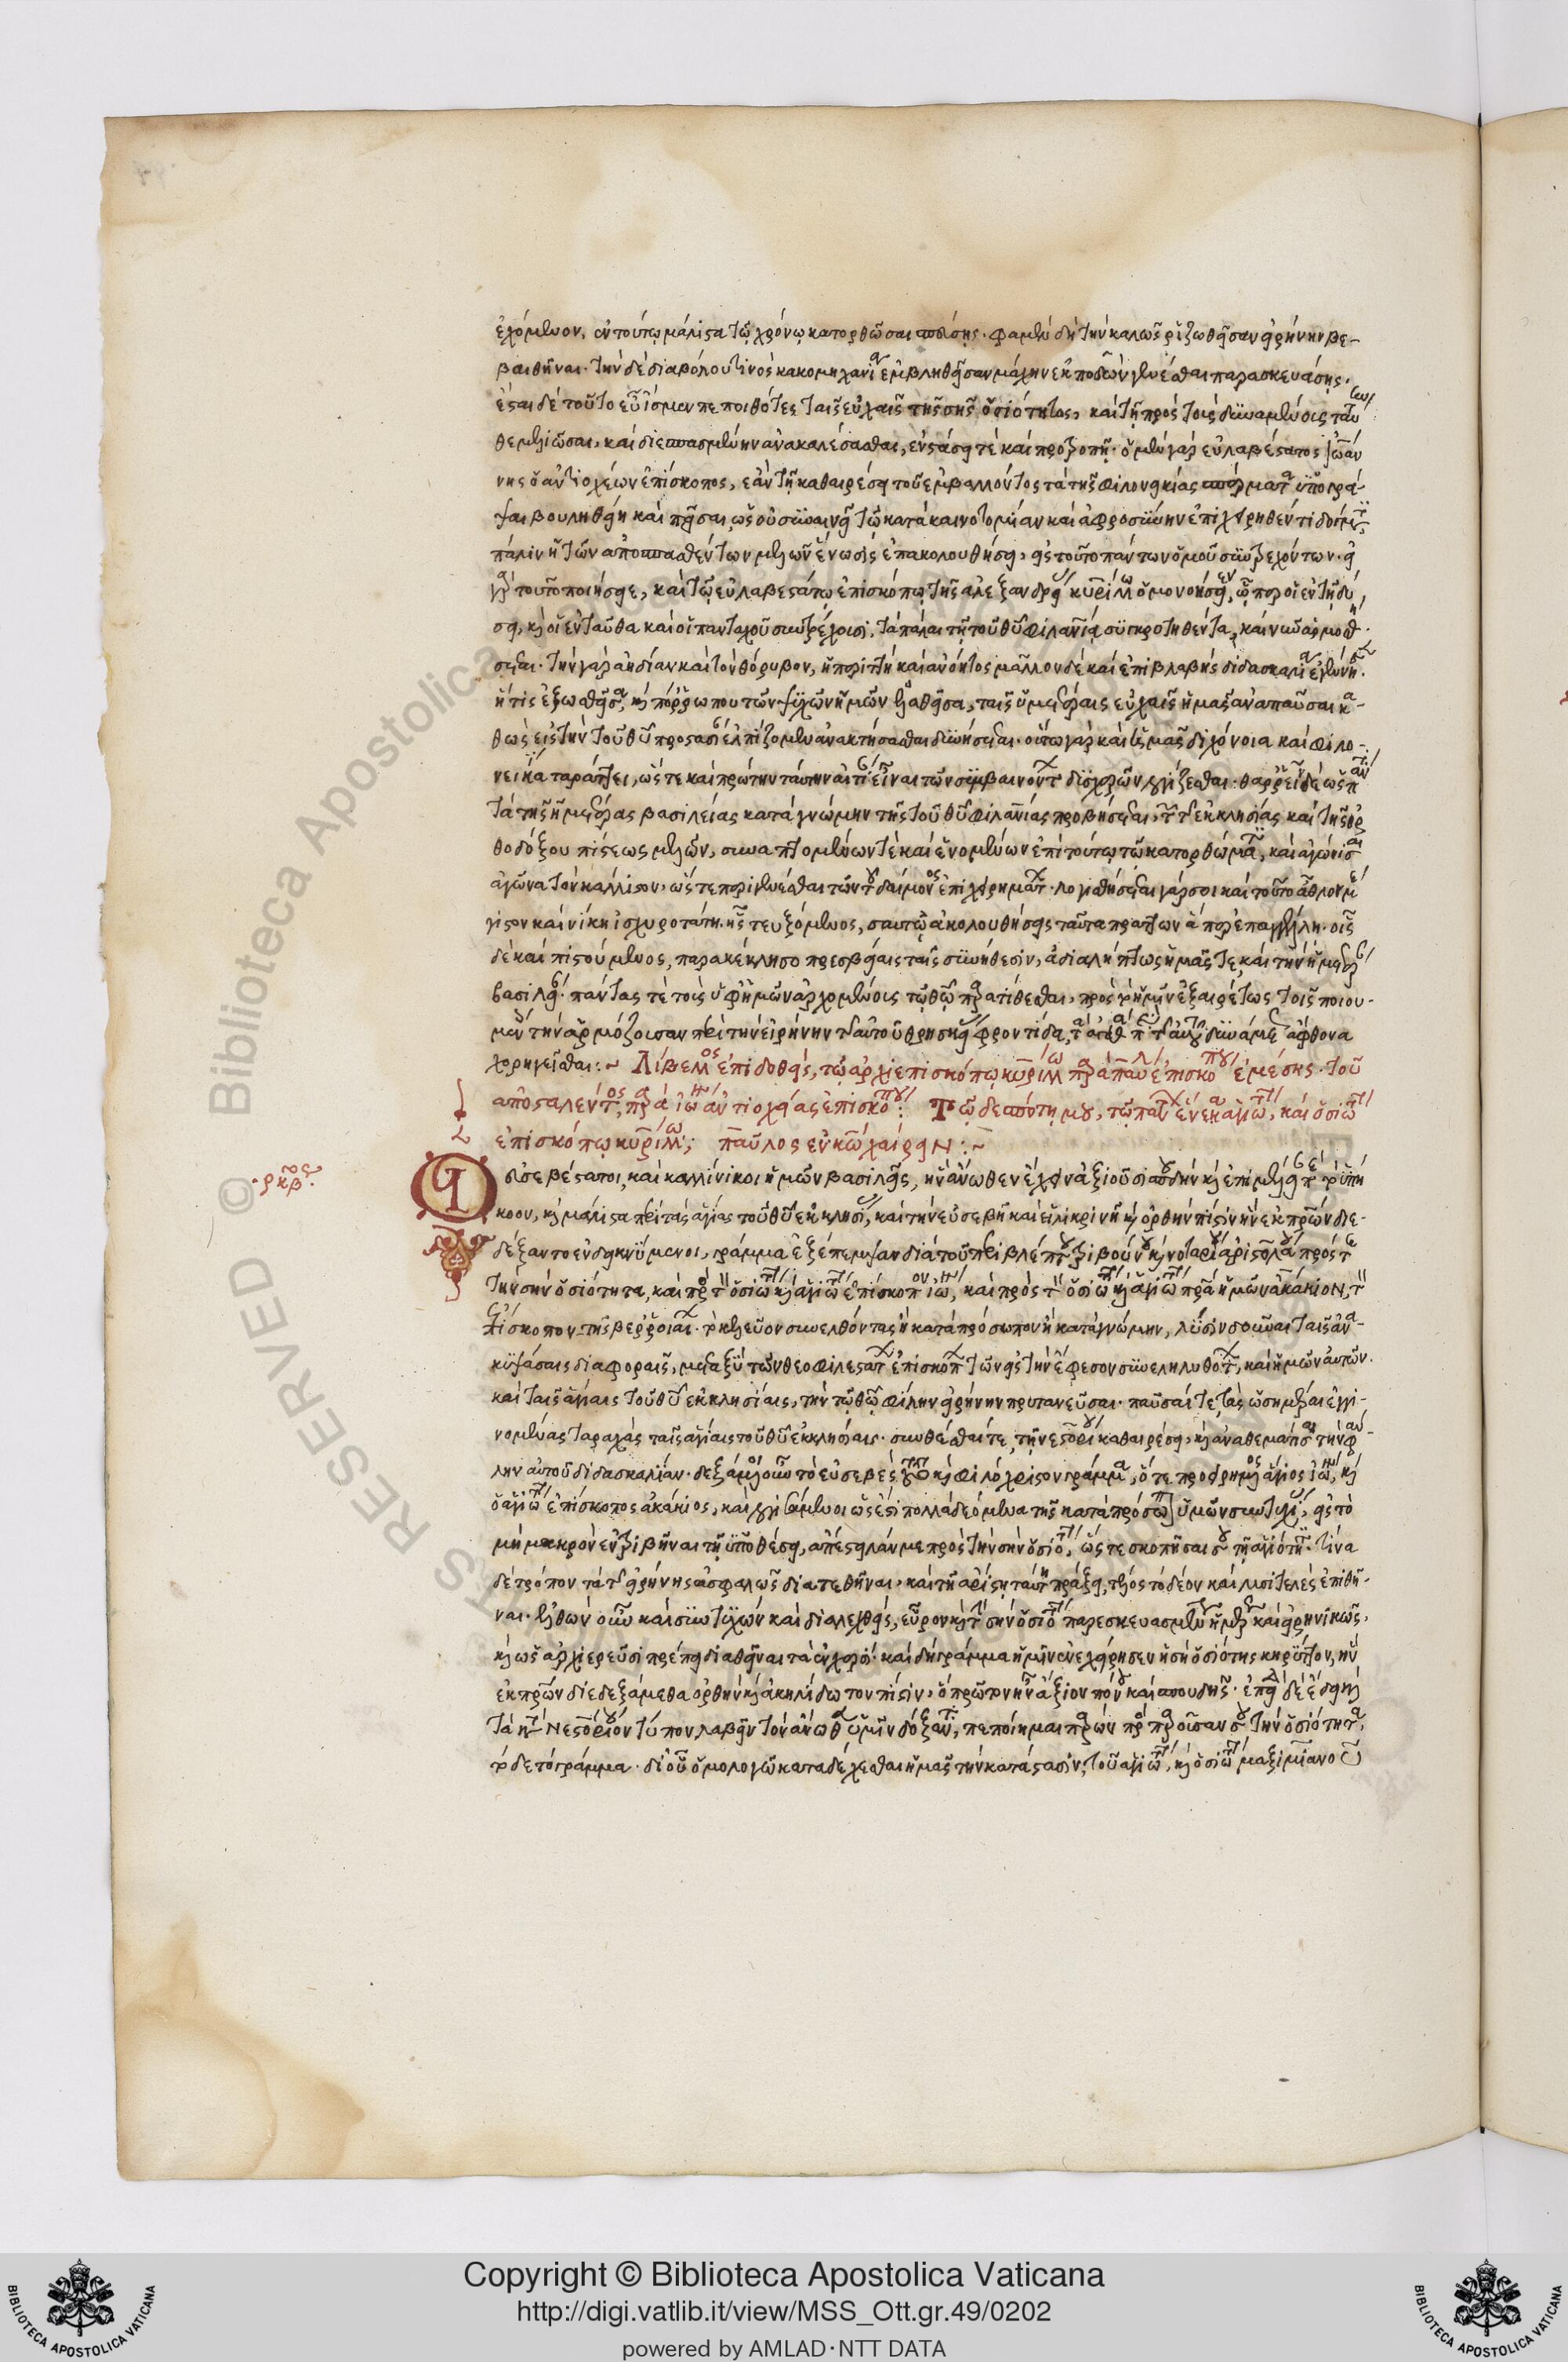 ἐχόμενον, ἐν τούτῳ μάλιστα τῷ χρόνῳ κατορθῶσαι σπεύσῃς. φαμὲν δὴ τὴν καλῶς ῥιζωθεῖσαν εἰρήνην βε-
βαιωθῆναι. τὴν δὲ διαβόλου τινὸς κακομηχανία ἐμβληθεῖσαν μάχην ἐκποδὼν γενέσθαι παρασκευάσῃς.
ἔσται δὲ τοῦτο εὖ ἴσμεν πεποιθότες ταῖς εὐχαῖς τῆς σῆς ὁσιότητος, καὶ τῇ πρὸς τοὺς
θεμελιῶσαι, καὶ διεσπασμένην ἀνακαλέσασθαι, ἐνστάσει τὲ καὶ προτροπῇ. ὁ μὲν γὰρ εὐλαβέστατος Ἰωάν
νης ὁ ἀντιοχέων ἐπίσκοπος, ἐὰν τῇ καθαιρέσει τοῦ ἐμβαλλόντος τὰ τῆς φιλονεικίας σπέρματα ὑπογρά-
ψαι βουληθείη καὶ πεῖσαι, ὡς οὐ συναινεῖ τῷ κατὰ καινοτομίαν καὶ ἀφροσύνην ἐπιχειρηθέντι δόγματι
πάλιν ἡ τῶν ἀποσπασθέντων μελῶν ἕνωσις ἐπακολουθήσει, εἰς τοῦτο πάντων ὁμοῦ συντρεχόντων. εἰ
γὰρ τοῦτο ποιήσειε, καὶ τῷ εὐλαβεστάτῳ ἐπισκόπῳ τῆς ἀλεξανδρείας κυρίλλω ὁμονοήσειεν, ᾧπερ οἱ ἐν τῇ δύ
σει, καὶ οἱ ἐνταῦθα καὶ οἱ πανταχοῦ συντρέχουσι, τὰ πάλαι τῇ τοῦ θυ φιλανίᾳ συγκροτηθέντα, καὶ νῦν ἁρμοσθή
σεται. τὴν γὰρ ἀηδίαν καὶ τὸν θόρυβον, ἡ περιττὴ καὶ ἀνόητος μᾶλλον δὲ καὶ ἐπιβλαβὴς διδασκαλία ἐγέννησε.
ἥτις ἐξωσθεῖσα, καὶ πόρρω που τῶν ψυχῶν ἡμῶν βληθεῖσα, ταῖς ὑμετέραις εὐχαῖς ἡμᾶς ἀναπαῦσαι κα-
θὼς εἰς τὴν τοῦ θυ προστασίαν ἐλπίζομεν ἀνακτήσασθαι δυνήσεται. οὕτω γὰρ καὶ ἡμᾶς διχόνοια καὶ φιλο-
νεικία ταράττει, ὥστε καὶ πρώτην ταύτην αἰτίαν εἶναι τῶν συμβαινόντων δυσχερῶν λογίζεσθαι. θαρρεῖν δὲ ὡς πάντα
τὰ τῆς ἡμετέρας βασιλείας κατὰ γνώμην τῆς τοῦ θυ φιλανίας προβήσεται, τῶν τῆς ἐκκλησίας καὶ τῆς ὀρ
θοδόξου πίστεως μελῶν, συναπτομένων τὲ καὶ ἑνουμένων ἐπὶ τούτῳ τῷ κατορθώματι, καὶ ἀγώνισαι
ἀγῶνα τὸν κάλλιστον, ὥστε περιγενέσθαι τῶν τοῦ δαίμονος ἐπιχειρημάτων. λογισθήσεται γάρ σοι καὶ τοῦτο ἆθλον μέ
γιστον καὶ νίκη ἰσχυροτάτη. ἧς τευξόμενος, σαυτῷ ἀκολουθήσεις ταῦτα πράττων ἅπερ ἐπαγγέλλῃ. οἷς
δὲ καὶ πιστούμενος, παρακέκλησο πρεσβείαις ταῖς συνήθεσιν, ἀδιαλήπτως ἡμᾶς τε, καὶ τὴν ἡμετέραν
βασιλείαν. πάντας τὲ τοὺς ὑφ' ἡμῶν ἀρχομένους τῷ θῷ παρατίθεσθαι, πρὸς τὸ ἡμῖν ἐξαιρέτως τοῖς ποιου-
μένοις τὴν ἁρμόζουσαν περὶ τὴν εἰρήνην τῆς αὐτοῦ θρησκείας φροντίδα, ἄφθονα
χορηγεῖσθαι:~ Λίβελλος ἐπιδοθεὶς, τῷ ἀρχιεπισκόπῳ κυρίλλω παρὰ παύλου ἐπισκόπου ἐμέσης. τοῦ
ἀποσταλέντος παρὰ ἰωάννου ἀντιοχείας ἐπισκόπου: Τῷ δεσπότῃ μου, τῷ πάντων ἕνεκα ἁγιωτάτω, καὶ ὁσιωτάτω
ἐπισκόπῳ κυρίλλω; παῦλος ἐν κῷ χαίρειν:~
ρκβος.
Οἱ εὐσεβέστατοι, καὶ καλλίνικοι ἡμῶν βασιλεῖς, ἣν ἄνωθεν ἔχειν ἀξιοῦσι σπουδὴν καὶ ἐπιμέλειαν περὶ τὸ ὑπή
κοον, καὶ μάλιστα περὶ τὰς ἁγίας τοῦ θυ ἐκκλησίας, καὶ τὴν εὐσεβῆ καὶ εἰλικρινῆ καὶ ὀρθὴν πίστιν ἣν ἐκ πρων διε-
δέξαντο ἐνδεικνύμενοι, γράμμα ἐξέπεμψαν διὰ τοῦ περιβλέπτου τριβούνου καὶ νοταρίου ἀριστολάου πρός τε
τὴν σὴν ὁσιότητα, καὶ πρὸς τὸν ὁσιώτατον καὶ ἁγιώτατον ἐπίσκοπον ἰωάννην, καὶ πρὸς τὸν ὁσιώτατον καὶ ἁγιώτατον πρα ἡμῶν ἀκάκιον, τὸν
ἐπίσκοπον τῆς βερροιαίων. τὸ κελεῦον συνελθόντας ἢ κατὰ πρόσωπον ἢ κατὰ γνώμην, λύσιν δοῦναι ταῖς ἀνα-
κυψάσαις διαφοραῖς, μεταξὺ τῶν θεοφιλεστάτων ἐπισκόπων τῶν εἰς τὴν ἔφεσον συνεληλυθότων, καὶ ἡμῶν αὐτῶν.
καὶ ταῖς ἁγίαις τοῦ θυ ἐκκλησίαις, τὴν τῷ θῷ φίλην εἰρήνην πρυτανεῦσαι. παῦσαί τε τὰς ὡσημέραι ἐγγι-
νομένας ταραχὰς ταῖς ἁγίαις τοῦ θυ ἐκκλησίαις. συνθέσθαι τε τῇ νεστορίου καθαιρέσει, καὶ ἀναθεματίσαι τὴν φαύ-
λην αὐτοῦ διδασκαλίαν. δεξάμενοι οὖν τὸ εὐσεβὲς τοῦτο καὶ φιλόχριστον γράμμα, ὅ τε προειρημένος ἅγιος ἰωάννης, καὶ
ὁ ἁγιώτατος ἐπίσκοπος ἀκάκιος, καὶ λογισάμενοι ὡς ἔστι πολλὰ δεόμενα τῆς κατὰ πρόσωπον ὑμῶν συντυχίας, εἰς τὸ
μὴ μακρὸν ἐντριβῆναι τῇ ὑποθέσει, ἀπέστειλάν με πρὸς τὴν σὴν ὁσιότητα, ὥστε σκοπῆσαι σου τῇ ἁγιότητι. τίνα
δὲ τρόπον τὰ τῆς εἰρήνης ἀσφαλῶς διατεθῆναι, καὶ τῇ ἀρίστῃ ταύτη πράξει, τέλος τὸ δέον καὶ λυσιτελὲς ἐπιθῆ-
ναι. ἐλθὼν οὖν καὶ συντυχὼν καὶ διαλεχθεὶς, εὗρον καὶ τὴν σὴν ὁσιότητα παρεσκευασμένην ἡμέρως καὶ εἰρηνικῶς,
καὶ ὡς ἀρχιερεῦσι πρέπει διαθῆναι τὰ ἐν χερσί. καὶ δὴ γράμμα ἡμῖν ἐνεχείρησεν ἡ σὴ ὁσιότης κηρύττον, ἣν
ἐκ πρων διεδεξάμεθα ὀρθὴν καὶ ἀκηλίδωτον πίστιν, ὃ πρῶτον ἦν ἄξιον πόνου καὶ σπουδῆς. ἐπεὶ δὲ ἔδει καὶ
τὰ κατὰ Νεστόριον τύπον λαβεῖν τὸν ἄνωθεν ὑμῖν δόξαντα, πεποίημαι παρὼν πρὸς παροῦσαν σου τὴν ὁσιότητα,
τόδε τὸ γράμμα. δι' οὗ ὁμολογῶ καταδέχεσθαι ἡμᾶς τὴν κατάστασιν, τοῦ ἁγιωτάτου, καὶ ὁσιωτάτου μαξιμιανοῦ
RESERVED © Biblioteca Apostolica
Copyright © Biblioteca Apostolica Vaticana
http://digi.vatlib.it/view/MSS_Ott.gr.49/0202
powered by AMLAD·NTT DATA
BIBLIOTECA APOSTOLICA VATICANA
BIBLIOTECA APOSTOLICA VATICANA